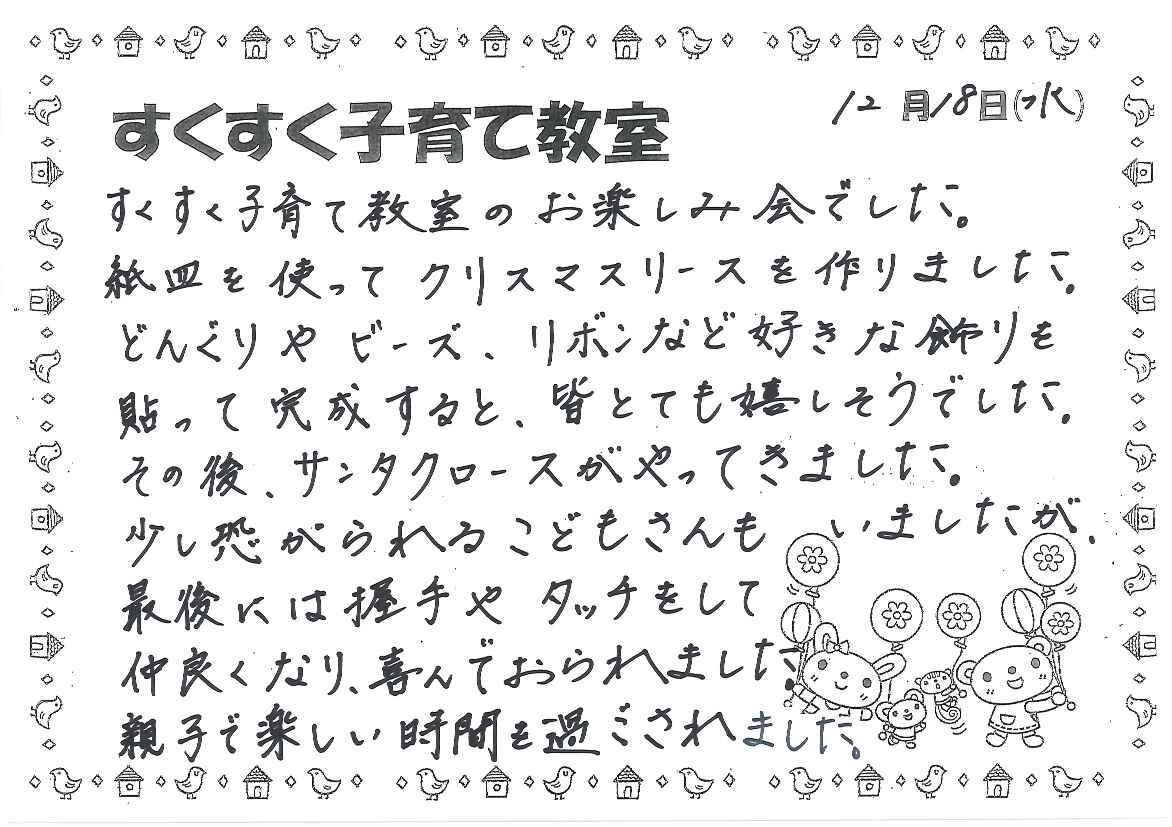 12月18日(水)
すくすく子育て教室
すくすく子育て教室のお楽しみ会でした。
紙皿を使ってクリスマスリースを作りました。
どんぐりやビーズ、リボンなど好きな飾りを
貼って完成すると、皆とても嬉しそうでした。
その後、サンタクロースがやってきました。
少し恐がられるこどもさんもいましたが、
最後には握手やタッチをして
仲良くなり、喜んでおられました。
親子で楽しい時間を過ごされました。